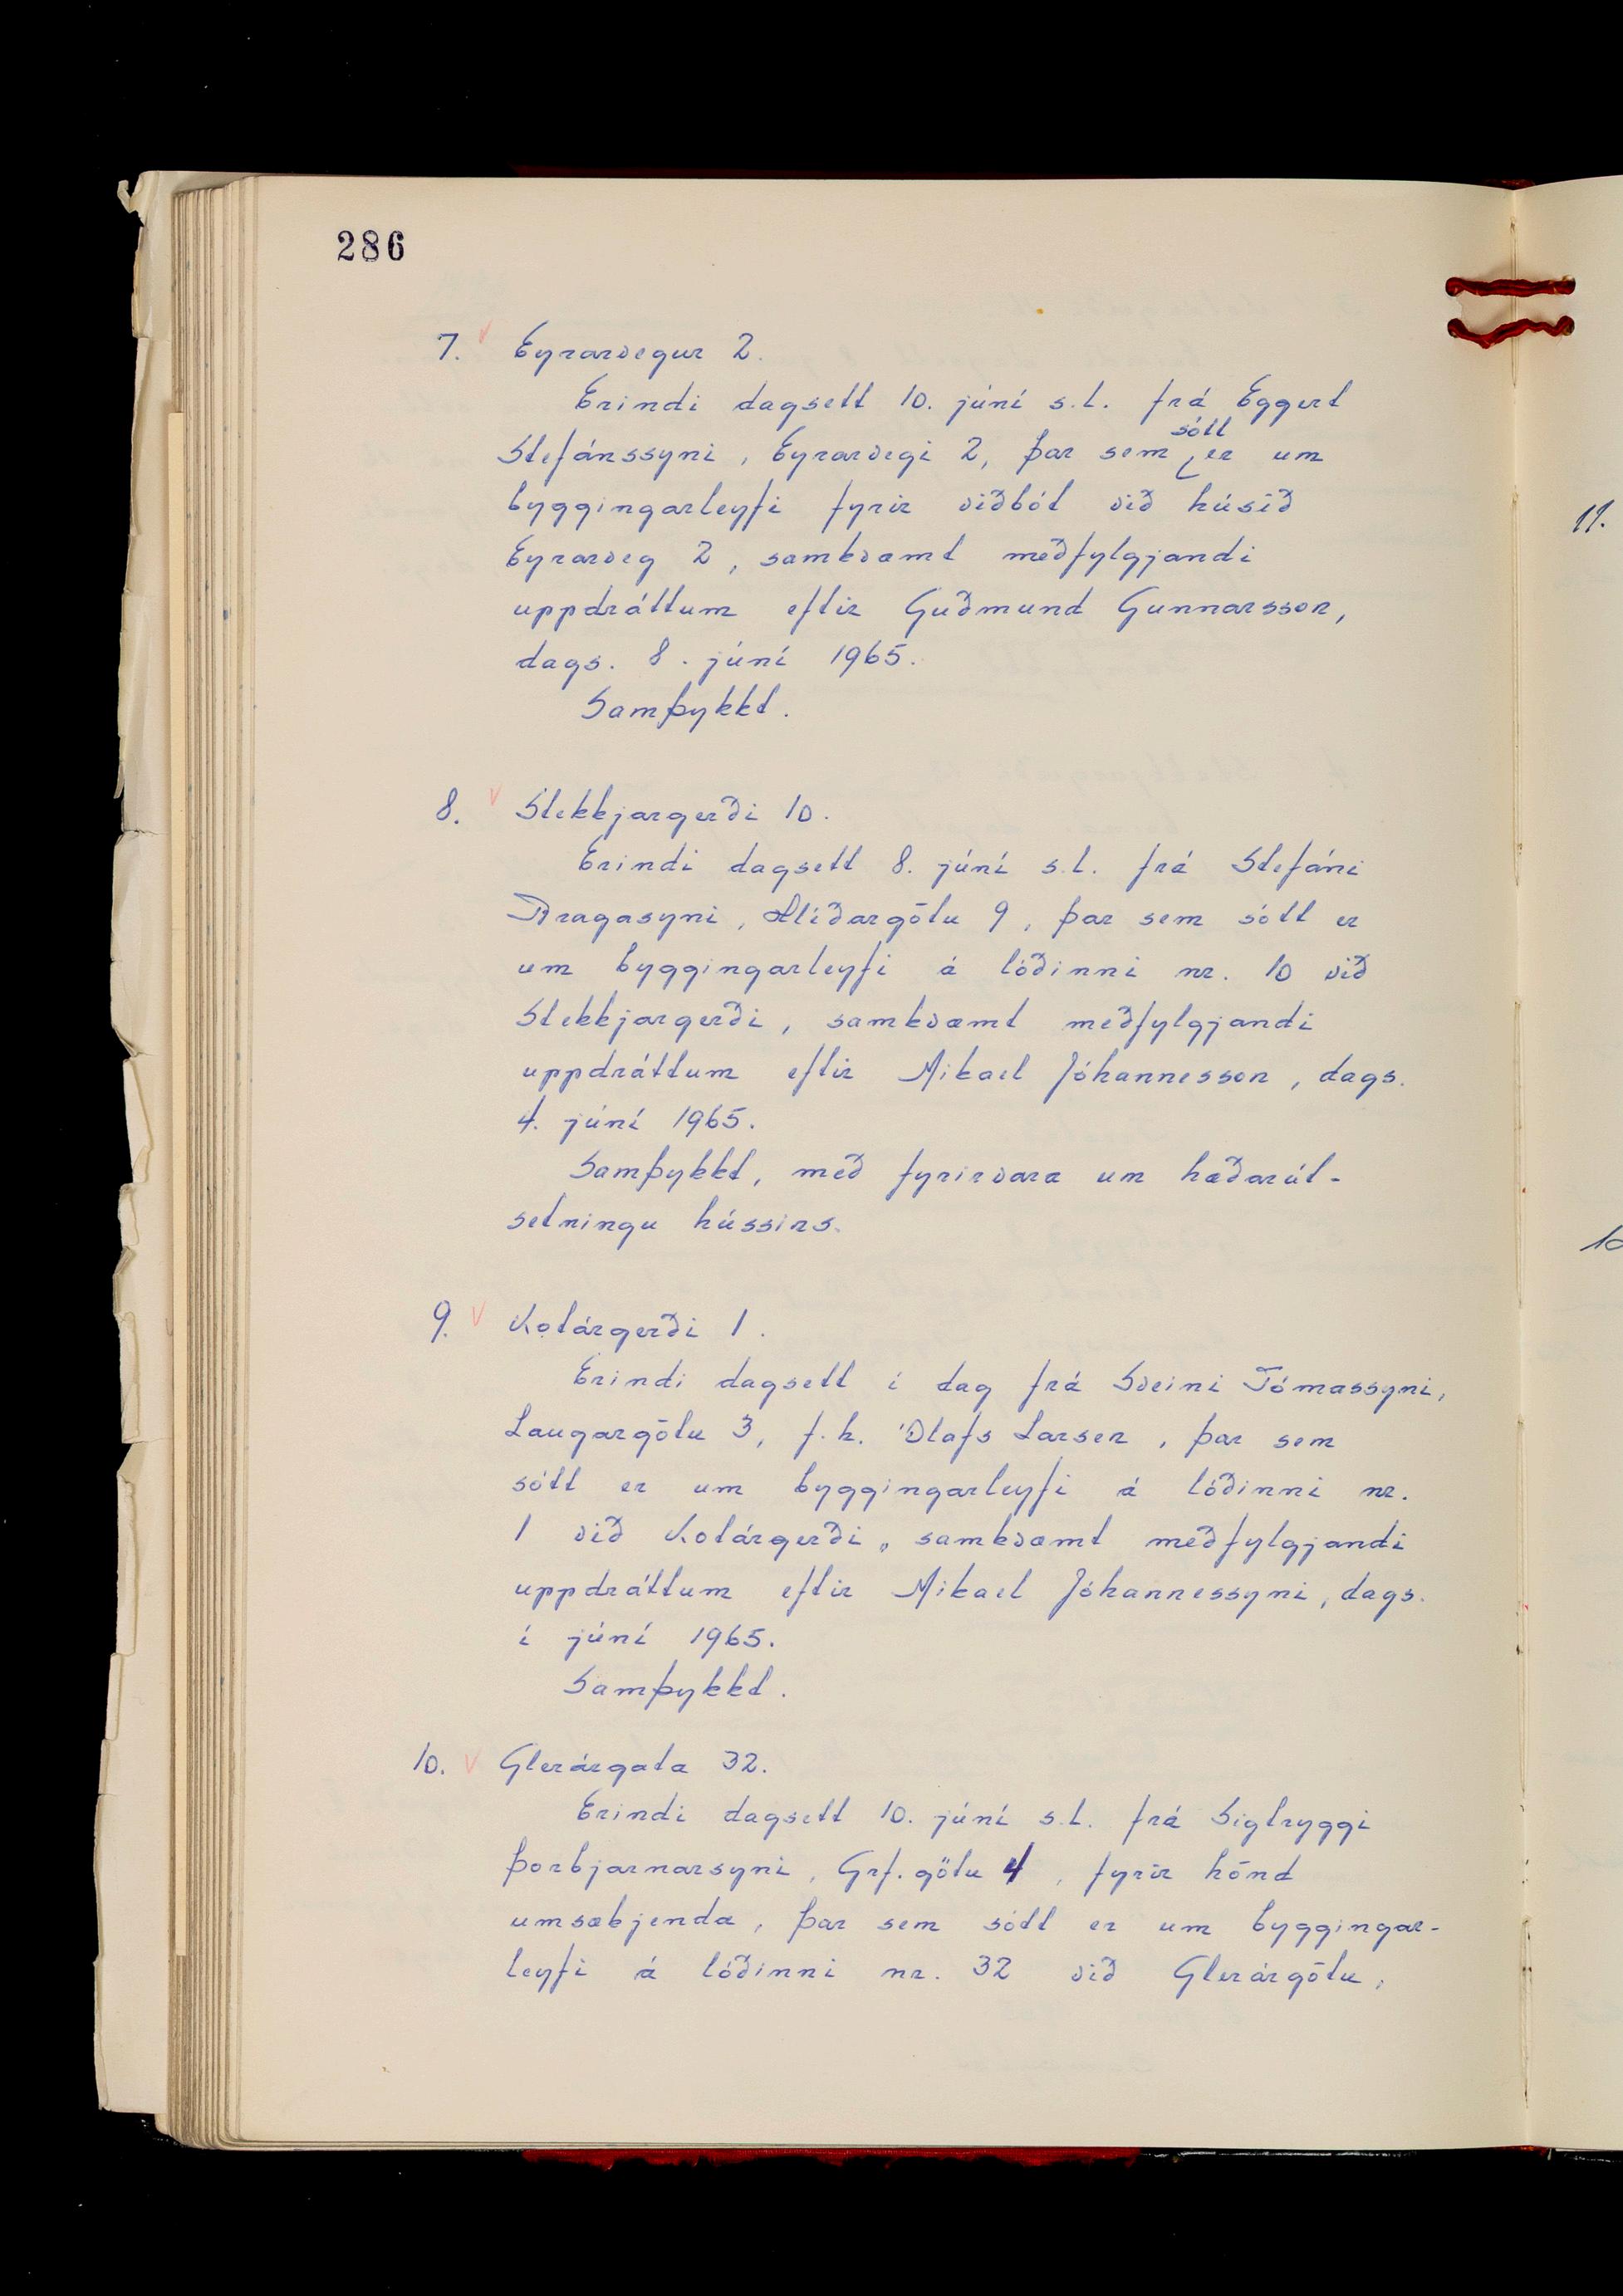 286
7. Eyrarvegur 2.
Erindi dagsett 10. júní s.l. frá Eggert
Stefánssyni, Eyrarvegi 2, þar sem sótt er um
byggingarleyfi fyrir viðbót við húsið
Eyrarveg 2, samkvæmt meðfylgjandi
uppdráttum eftir Guðmund Gunnarsson,
dags. 8. júní 1965.
Samþykkt.
8. Stekkjargerði 10.
Erindi dagsett 8. júní s.l. frá Stefáni
Bragasyni, Hlíðargötu 9, þar sem sótt er
um byggingarleyfi á lóðinni nr. 10 við
Stekkjargerði, samkvæmt meðfylgjandi
uppdráttum eftir Mikael Jóhannesson, dags.
4. júní 1965.
Samþykkt, með fyrirvara um hæðarút-
setningu hússins.
9. Kotárgerði 1.
Erindi dagsett í dag frá Sveini Tómassyni,
Laugargötu 3, f.h. Ólafs Larsen, þar sem
sótt er um byggingarleyfi á lóðinni nr.
1 við Kotárgerði, samkvæmt meðfylgjandi
uppdráttum eftir Mikael Jóhannessyni, dags.
í júní 1965.
Samþykkt.
10. Glerárgata 32.
Erindi dagsett 10. júní s.l. frá Sigtryggi
Þorbjarnarsyni, Grf.götu 4, fyrir hönd
umsækjenda, þar sem sótt er um byggingar-
leyfi á lóðinni nr. 32 við Glerárgötu,
11.